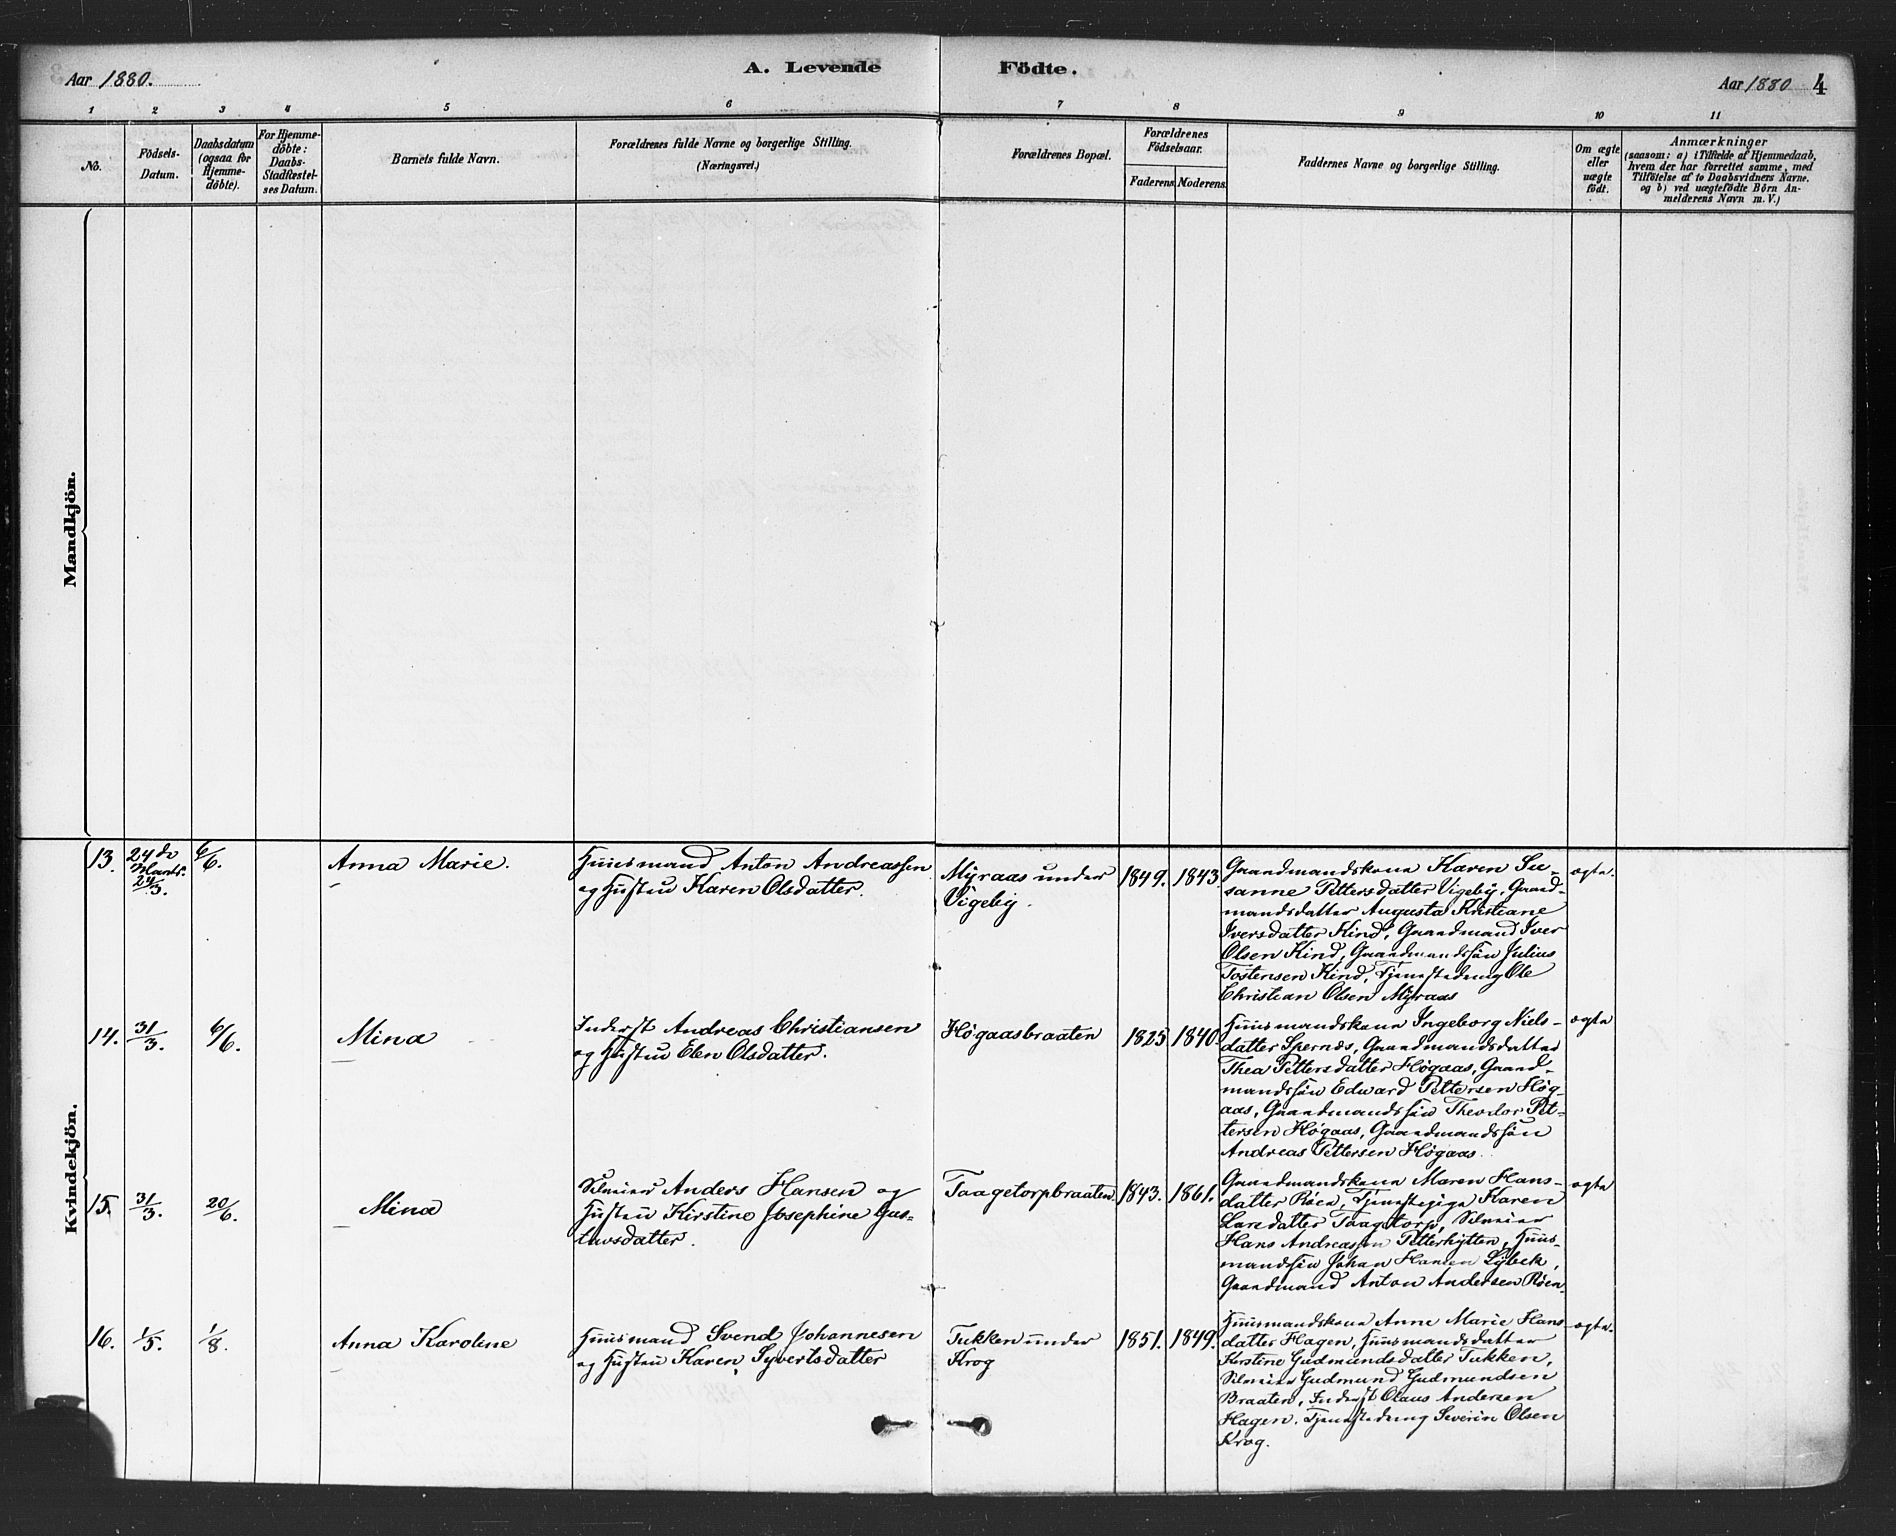 Aar 1880.
A. Levende Födte.
Aar 1880
4
1 2 3 4 5 6 7 8 9 10 11
No.
Födsels-
Datum.
Daabsdatum
(ogsaa for
Hjemme-
döbte).
For Hjemme-
döbte:
Daabs-
Stadfæstel-
ses Datum.
Barnets fulde Navn.
Forældrenes fulde Navne og borgerlige Stilling.
(Næringsvei.)
Forældrenes Bopæl.
Forældrenes
Födselsaar.
Faderens. Moderens.
Faddernes Navne og borgerlige Stilling.
Om ægte
eller
uægte
födt.
Anmærkninger
(saasom: a) i Tilfælde af Hjemmedaab,
hvem der har forrettet samme, med
Tilföielse af to Daabsvidners Navne.
og b) ved uægtefödte Börn An-
melderens Navn m. V.)
Mandkjön.
Kvindekjön.
13.
24de
Marts.
24/3.
6/6.
Anna Marie.
Huusmand Anton Andreassen
og Hustru Karen Olsdatter.
Myraas under
Vigeby.
1849. 1843.
Gaardmandskone Karen Su-
sanne Pettersdatter Vigeby, Gaard-
mandsdatter Augusta Kristiane
Iversdatter Kind, Gaardmand Iver
Olsen Kind, Gaardmandssön Julius
Tostensen Kind, Tjenestedreng Ole
Christian Olsen Myraas
ægte.
14.
31/3.
6/6.
Mina
Inderst Andreas Christiansen
og Hustru Elen Olsdatter.
Høgaasbraaten
1825 1840
Huusmandskone Ingeborg Niels-
datter Spernes, Gaardmandsdatter
Thea Pettersdatter Høgaas, Gaard-
mandssön Edward Pettersen Høg-
aas, Gaardmandssön Theodor Pet-
tersen Høgaas, Gaardmandssön
Andreas Pettersen Høgaas.
ægte
15.
31/3.
20/6.
Mina
Selveier Anders Hansen og
Hustru Kirstine Josephine Gus-
tavsdatter.
Taagetorpbraaten
1843. 1861.
Gaardmandskone Maren Hans-
datter Röen, Tjenestepige Karen
Larsdatter Taagetorp, Selveier
Hans Andreassen Petterhytten, Huus-
mandssön Johan Hansen Lybeck,
Gaardmand Anton Andersen Röen.
ægte
16.
1/5.
1/8.
Anna Karoline
Huusmand Svend Johannesen
og Hustru Karen Syvertsdatter
Tukken under
Krog
1851. 1849.
Huusmandskone Anne Marie Hans
datter Hagen, Huusmandsdatter
Kerstine Gudmundsdatter Tukken,
Selveier Gudmund Gudmundsen
Braaten, Inderst Olaus Andersen
Hagen. Tjenestedreng Severin Olsen
Krog.
ægte.